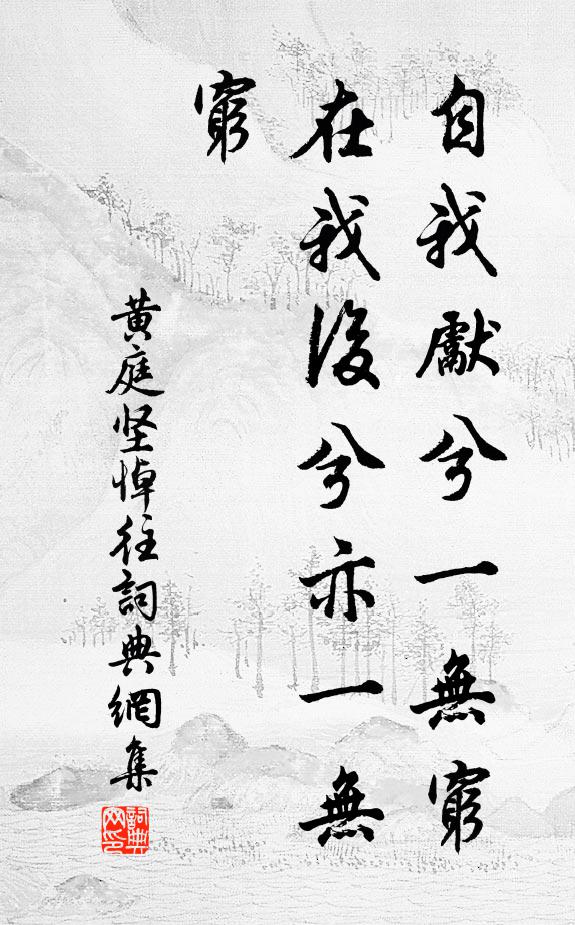 自我獻兮一無窮
在我後兮亦一無
窮
黄庭坚悼往詞典網集
詞典
网印